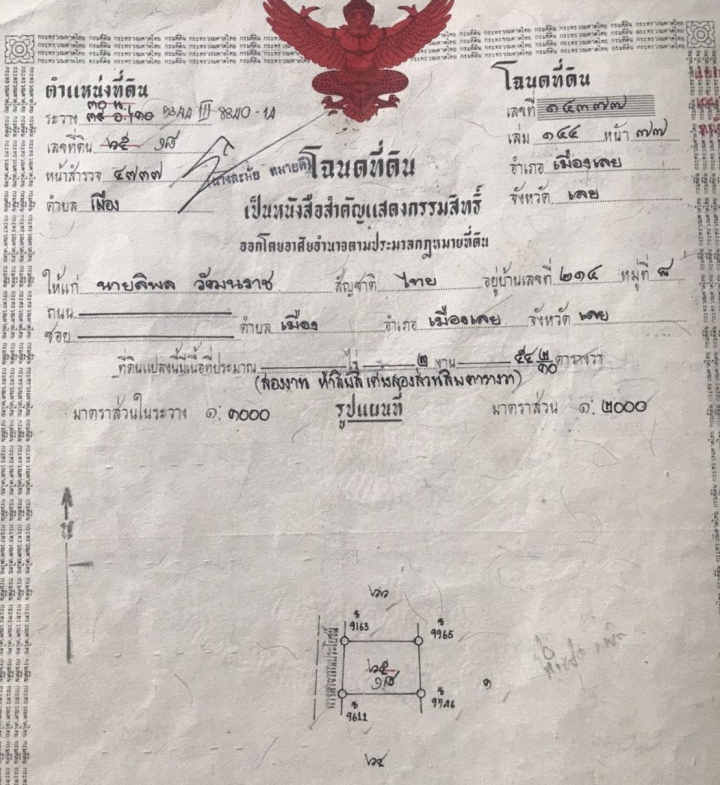 ตำแหน่งที่ดิน
ระวาง 5344 III 8840-14
เลขที่ดิน ๖๕ ๑๘
หน้าสำรวจ ๔๗๓๗
ตำบล เมือง
โฉนดที่ดิน
เลขที่ ๑๔๓๗๗
เล่ม ๑๔๔ หน้า ๗๗
อำเภอ เมืองเลย
จังหวัด เลย
โฉนดที่ดิน
เป็นหนังสือสำคัญแสดงกรรมสิทธิ์
ออกโดยอาศัยอำนาจตามประมวลกฎหมายที่ดิน
ให้แก่ สัญชาติ ไทย อยู่บ้านเลขที่ ๒๑๔ หมู่ที่
ถนน
ซอย ตำบล เมือง อำเภอ เมืองเลย จังหวัด เลย
ที่ดินแปลงนี้มีเนื้อที่ประมาณ ไร่ ๒ งาน ๕๔ ๒/๑๐ ตารางวา
(สองงาน ห้าสิบสี่เศษสองส่วนสิบตารางวา)
มาตราส่วนในระวาง ๑:๑๐๐๐ รูปแผนที่ มาตราส่วน ๑:๒๐๐๐
น
9163
9965
ทางสาธารณประโยชน์
๖๕
๑๘
๑
9611